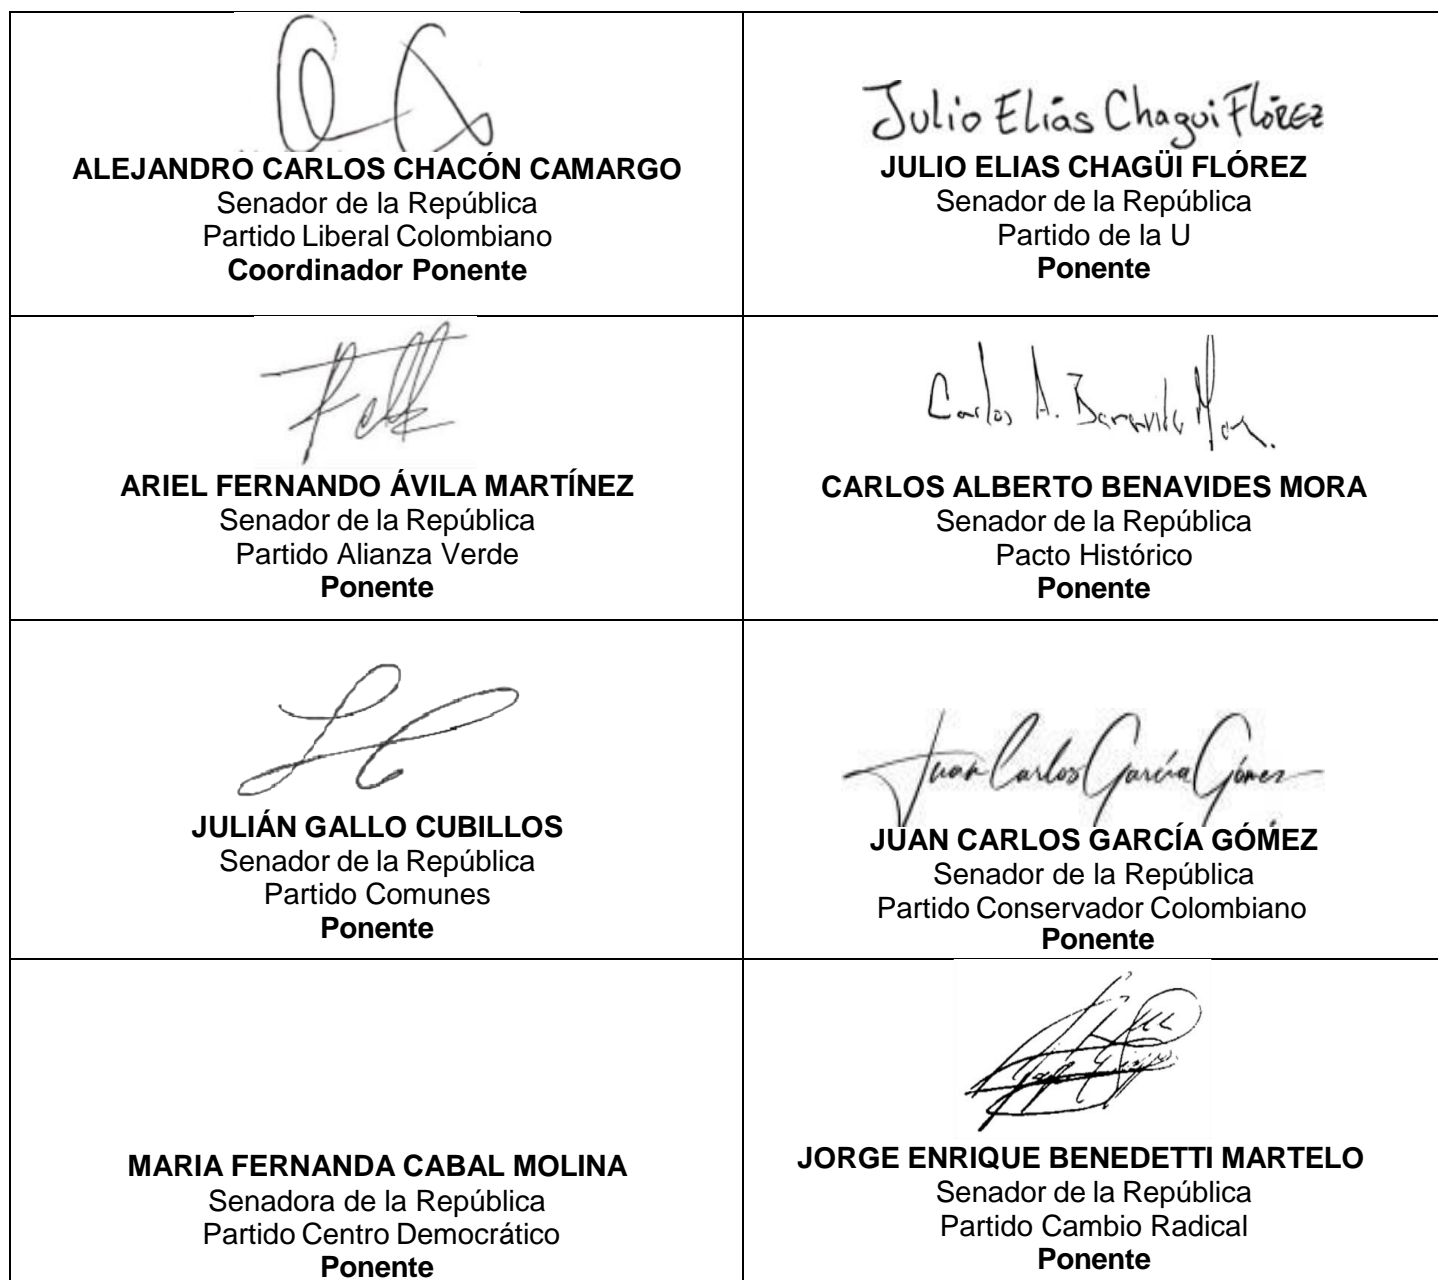 ALEJANDRO CARLOS CHACÓN CAMARGO
Senador de la República
Partido Liberal Colombiano
Coordinador Ponente
Julio Elías Chagui Flórez
JULIO ELIAS CHAGÜI FLÓREZ
Senador de la República
Partido de la U
Ponente
ARIEL FERNANDO ÁVILA MARTÍNEZ
Senador de la República
Partido Alianza Verde
Ponente
Carlos A. Benavides Mora.
CARLOS ALBERTO BENAVIDES MORA
Senador de la República
Pacto Histórico
Ponente
JULIÁN GALLO CUBILLOS
Senador de la República
Partido Comunes
Ponente
Juan Carlos García Gómez
JUAN CARLOS GARCÍA GÓMEZ
Senador de la República
Partido Conservador Colombiano
Ponente
MARIA FERNANDA CABAL MOLINA
Senadora de la República
Partido Centro Democrático
Ponente
JORGE ENRIQUE BENEDETTI MARTELO
Senador de la República
Partido Cambio Radical
Ponente